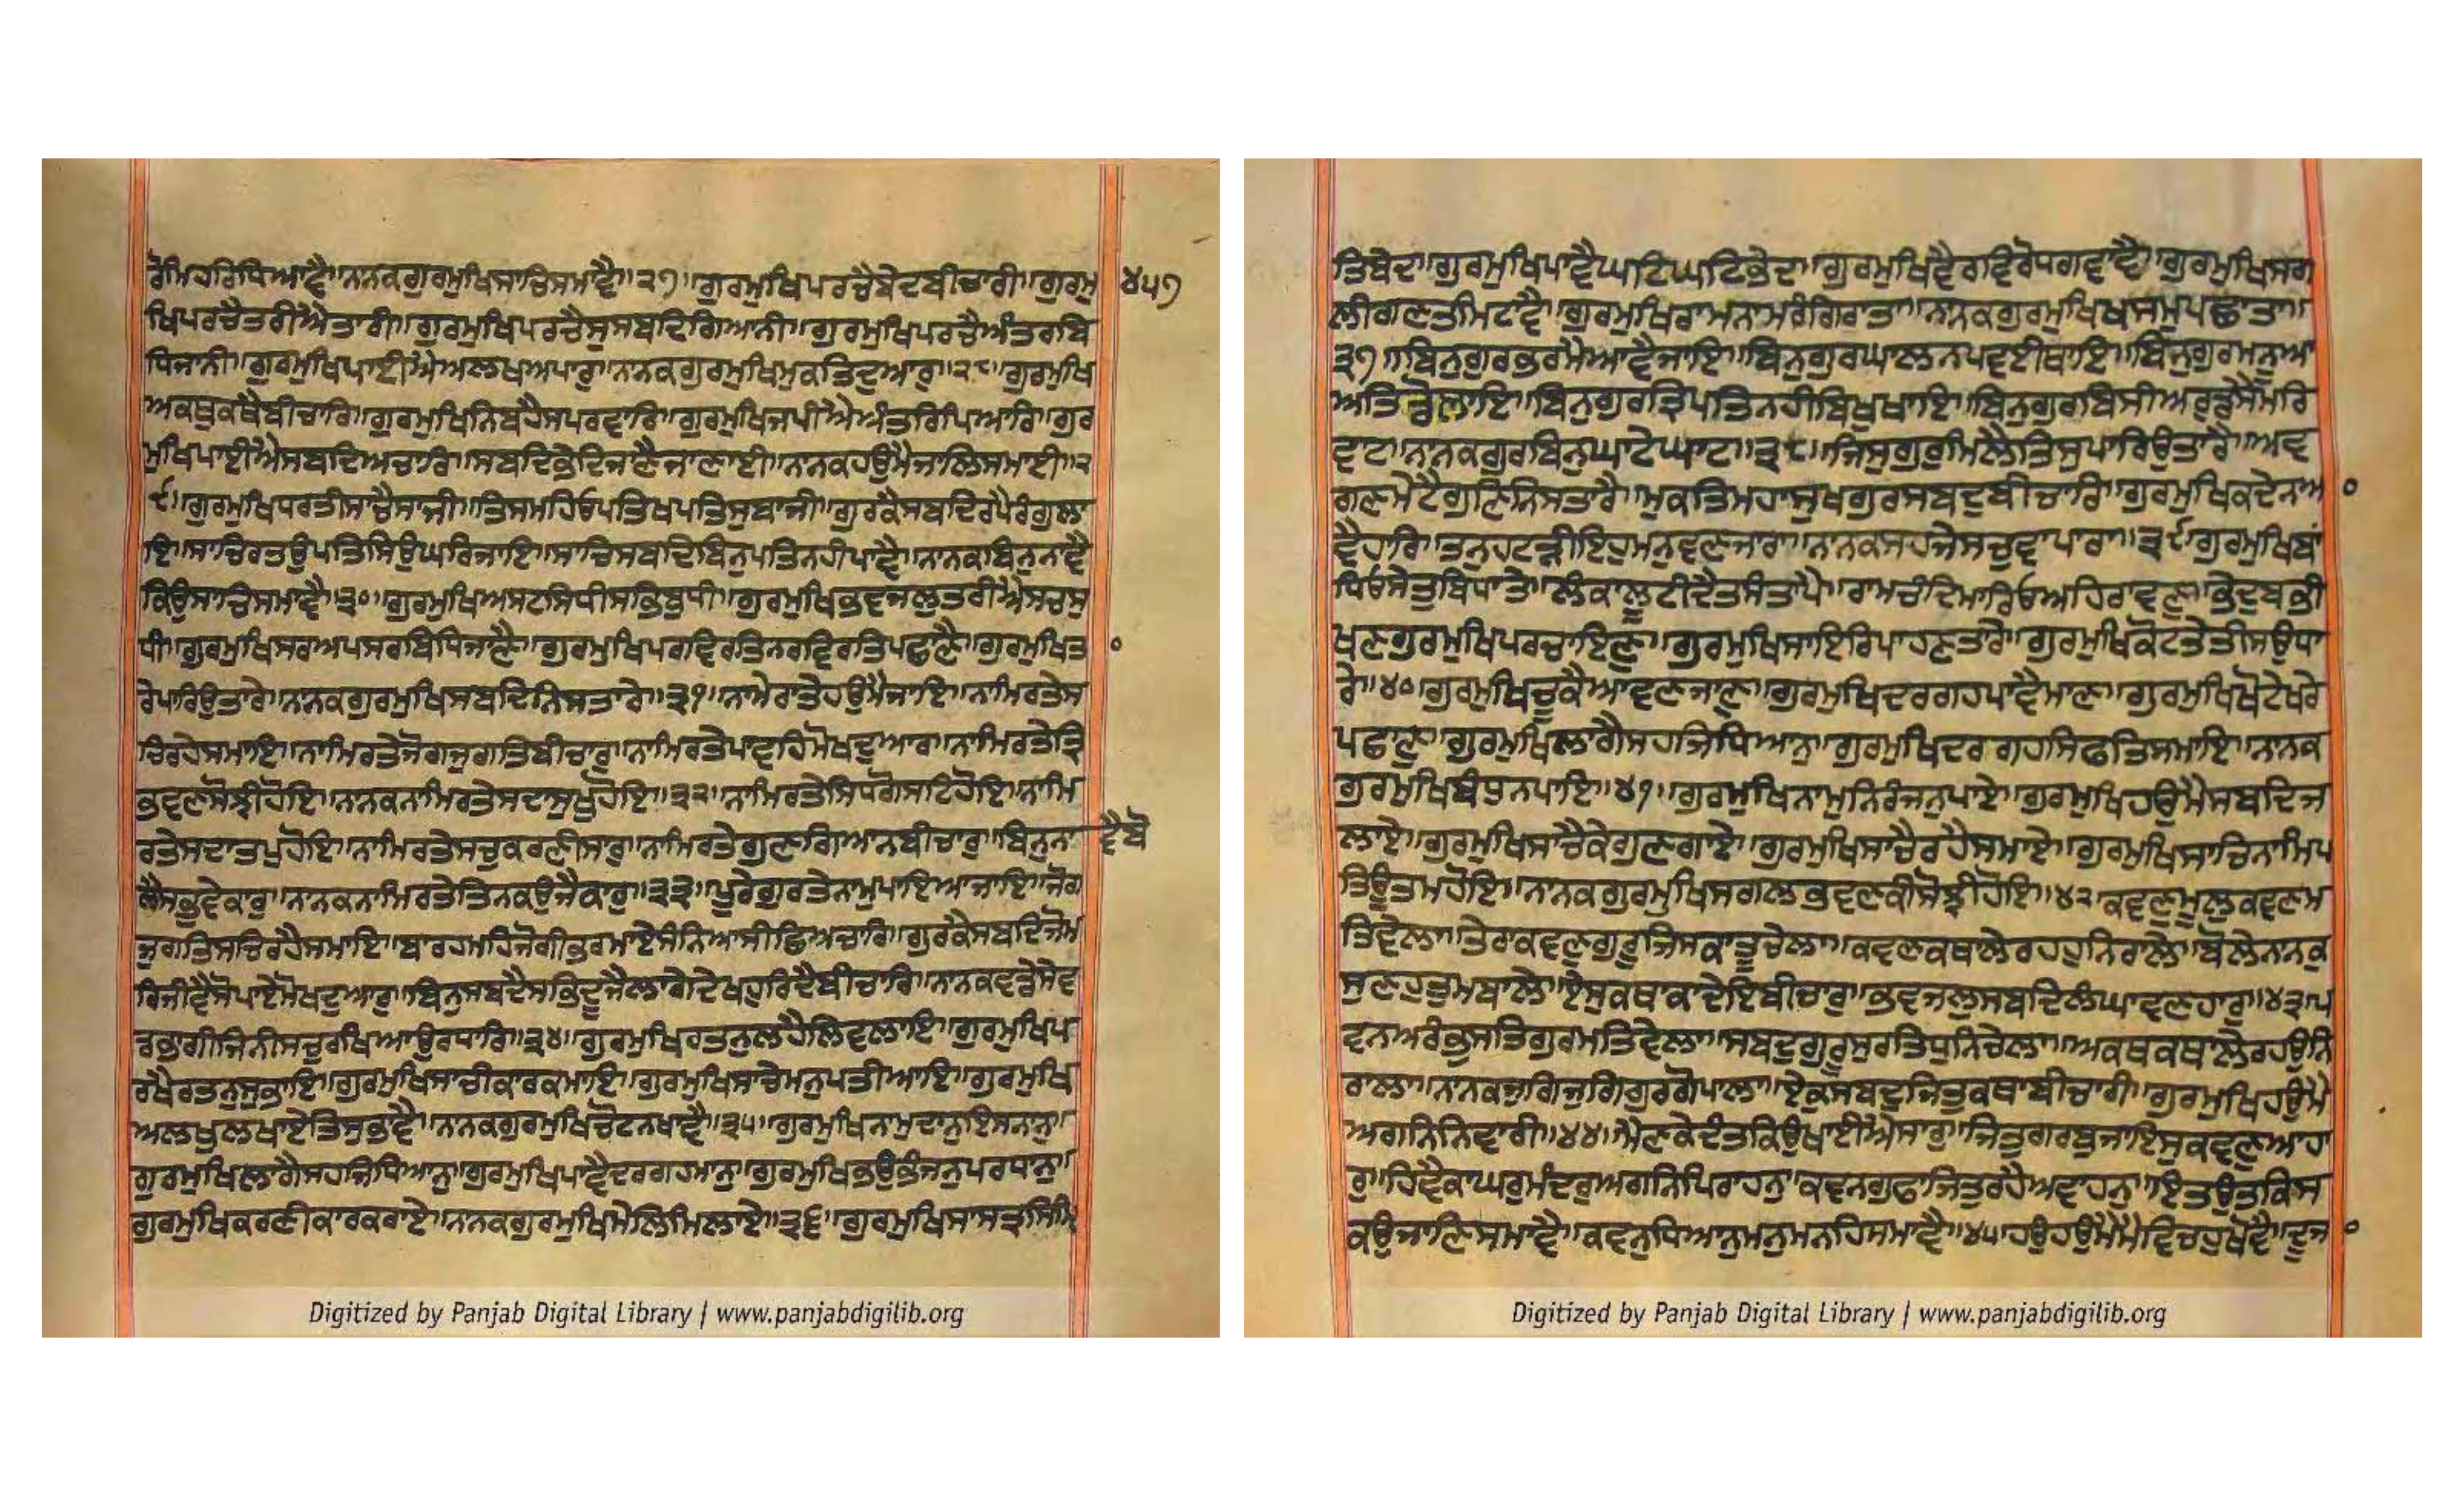 ਰੋਮਿਹਰਿਧਿਆਵੈ॥ਨਾਨਕਗੁਰਮੁਖਿਸਾਚਿਸਮਾਵੈ॥੨੭॥ਗੁਰਮੁਖਿਪਰਚੈਬੇਦਬੀਚਾਰੀ॥ਗੁਰਮੁ
੪੫੭
ਖਿਪਰਚੈਤਰੀਐਤਾਰੀ॥ਗੁਰਮੁਖਿਪਰਚੈਸੁਸਬਦਿਗਿਆਨੀ॥ਗੁਰਮੁਖਿਪਰਚੈਅੰਤਰਬਿ
ਧਿਜਾਨੀ॥ਗੁਰਮੁਖਿਪਾਈਐਅਲਖਅਪਾਰੁ॥ਨਾਨਕਗੁਰਮੁਖਿਮੁਕਤਿਦੁਆਰੁ॥੨੮॥ਗੁਰਮੁਖਿ
ਅਕਥੁਕਥੈਬੀਚਾਰਿ॥ਗੁਰਮੁਖਿਨਿਬਹੈਸਪਰਵਾਰਿ॥ਗੁਰਮੁਖਿਜਪੀਐਅੰਤਰਿਪਿਆਰਿ॥ਗੁਰ
ਮੁਖਿਪਾਈਐਸਬਦਿਅਚਾਰਿ॥ਸਬਦਿਭੇਦਿਜਾਣੈਜਾਣਾਈ॥ਨਾਨਕਹਉਮੈਜਾਲਿਸਮਾਈ॥੨
੯॥ਗੁਰਮੁਖਿਧਰਤੀਸਾਚੈਸਾਜੀ॥ਤਿਸਮਹਿਓਪਤਿਖਪਤਿਸੁਬਾਜੀ॥ਗੁਰਕੈਸਬਦਿਰਪੈਰੰਗੁਲਾ
ਇ॥ਸਾਚਿਰਤਉਪਤਿਸਿਉਘਰਿਜਾਇ॥ਸਾਚਿਸਬਦਿਬਿਨੁਪਤਿਨਹੀਪਾਵੈ॥ਨਾਨਕਬਿਨੁਨਾਵੈ
ਕਿਉਸਾਚਿਸਮਾਵੈ॥੩੦॥ਗੁਰਮੁਖਿਅਸਟਸਿਧੀਸਭਿਬੁਧੀ॥ਗੁਰਮੁਖਿਭਵਜਲੁਤਰੀਐਸਚਸੁ
ਧੀ॥ਗੁਰਮੁਖਿਸਰਅਪਸਰਬਿਧਿਜਾਣੈ॥ਗੁਰਮੁਖਿਪਰਵਿਰਤਿਨਰਵਿਰਤਿਪਛਾਣੈ॥ਗੁਰਮੁਖਿਤਾ
ਰੇਪਾਰਿਉਤਾਰੇ॥ਨਾਨਕਗੁਰਮੁਖਿਸਬਦਿਨਿਸਤਾਰੇ॥੩੧॥ਨਾਮੇਰਾਤੇਹਉਮੈਜਾਇ॥ਨਾਮਿਰਤੇਸ
ਚਿਰਹੇਸਮਾਇ॥ਨਾਮਿਰਤੇਜੋਗਜੁਗਤਿਬੀਚਾਰੁ॥ਨਾਮਿਰਤੇਪਾਵਹਿਮੋਖਦੁਆਰੁ॥ਨਾਮਿਰਤੇਤ੍ਰਿ
ਭਵਣਸੋਝੀਹੋਇ॥ਨਾਨਕਨਾਮਿਰਤੇਸਦਾਸੁਖੁਹੋਇ॥੩੨॥ਨਾਮਿਰਤੇਸਿਧਗੋਸਟਿਹੋਇ॥ਨਾਮਿ
ਰਤੇਸਦਾਤਪੁਹੋਇ॥ਨਾਮਿਰਤੇਸਚੁਕਰਣੀਸਾਰੁ॥ਨਾਮਿਰਤੇਗੁਣਗਿਆਨਬੀਚਾਰੁ॥ਬਿਨੁਨਾ
ਵੈਬੋ
ਲੈਸਭੁਵੇਕਾਰੁ॥ਨਾਨਕਨਾਮਿਰਤੇਤਿਨਕਉਜੈਕਾਰੁ॥੩੩॥ਪੂਰੇਗੁਰਤੇਨਾਮੁਪਾਇਆਜਾਇ॥ਜੋਗ
ਜੁਗਤਿਸਚਿਰਹੈਸਮਾਇ॥ਬਾਰਹਮਹਿਜੋਗੀਭਰਮਾਏਸੰਨਿਆਸੀਛਿਅਚਾਰਿ॥ਗੁਰਕੈਸਬਦਿਜੋਮ
ਰਿਜੀਵੈਸੋਪਾਏਮੋਖਦੁਆਰੁ॥ਬਿਨੁਸਬਦੈਸਭਿਦੂਜੈਲਾਗੇਦੇਖਹੁਰਿਦੈਬੀਚਾਰਿ॥ਨਾਨਕਵਡੇਸੇਵ
ਡਭਾਗੀਜਿਨੀਸਚੁਰਖਿਆਉਰਧਾਰਿ॥੩੪॥ਗੁਰਮੁਖਿਰਤਨੁਲਹੈਲਿਵਲਾਇ॥ਗੁਰਮੁਖਿਪ
ਰਖੈਰਤਨੁਸੁਭਾਇ॥ਗੁਰਮੁਖਿਸਾਚੀਕਾਰਕਮਾਇ॥ਗੁਰਮੁਖਿਸਾਚੇਮਨੁਪਤੀਆਇ॥ਗੁਰਮੁਖਿ
ਅਲਖੁਲਖਾਏਤਿਸੁਭਾਵੈ॥ਨਾਨਕਗੁਰਮੁਖਿਚੋਟਨਖਾਵੈ॥੩੫॥ਗੁਰਮੁਖਿਨਾਮੁਦਾਨੁਇਸਨਾਨੁ॥
ਗੁਰਮੁਖਿਲਾਗੈਸਹਜਿਧਿਆਨੁ॥ਗੁਰਮੁਖਿਪਾਵੈਦਰਗਹਮਾਨੁ॥ਗੁਰਮੁਖਿਭਉਭੰਜਨੁਪਰਧਾਨੁ॥
ਗੁਰਮੁਖਿਕਰਣੀਕਾਰਕਰਾਏ॥ਨਾਨਕਗੁਰਮੁਖਿਮੇਲਿਮਿਲਾਏ॥੩੬॥ਗੁਰਮੁਖਿਸਾਸਤ੍ਰਸਿਮਿ
Digitized by Panjab Digital Library | www.panjabdigilib.org
ਤਿਬੇਦ॥ਗੁਰਮੁਖਿਪਾਵੈਘਟਿਘਟਿਭੇਦ॥ਗੁਰਮੁਖਿਵੈਰਵਿਰੋਧਗਵਾਵੈ॥ਗੁਰਮੁਖਿਸਗ
ਲੀਗਣਤਮਿਟਾਵੈ॥ਗੁਰਮੁਖਿਰਾਮਨਾਮਰੰਗਿਰਾਤਾ॥ਨਾਨਕਗੁਰਮੁਖਿਖਸਮੁਪਛਾਤਾ॥
੩੭॥ਬਿਨੁਗੁਰਭਰਮੈਆਵੈਜਾਇ॥ਬਿਨੁਗੁਰਘਾਲਨਪਵਈਥਾਇ॥ਬਿਨੁਗੁਰਮਨੂਆ
ਅਤਿਡੋਲਾਇ॥ਬਿਨੁਗੁਰਤ੍ਰਿਪਤਿਨਹੀਬਿਖੁਖਾਇ॥ਬਿਨੁਗੁਰਬਿਸੀਅਰੁਡਸੈਮਰਿ
ਵਾਟ॥ਨਾਨਕਗੁਰਬਿਨੁਘਾਟੇਘਾਟ॥੩੮॥ਜਿਸੁਗੁਰੁਮਿਲੈਤਿਸੁਪਾਰਿਉਤਾਰੈ॥ਅਵ
ਗਣਮੇਟੈਗੁਣਿਨਿਸਤਾਰੈ॥ਮੁਕਤਿਮਹਾਸੁਖਗੁਰਸਬਦੁਬੀਚਾਰਿ॥ਗੁਰਮੁਖਿਕਦੇਨਆ
ਵੈਹਾਰਿ॥ਤਨੁਹਟੜੀਇਹੁਮਨੁਵਣਜਾਰਾ॥ਨਾਨਕਸਹਜੇਸਚੁਵਾਪਾਰਾ॥੩੯॥ਗੁਰਮੁਖਿਬਾਂ
ਧਿਓਸੇਤੁਬਿਧਾਤੇ॥ਲੰਕਾਲੂਟੀਦੈਤਸੰਤਾਪੈ॥ਰਾਮਚੰਦਿਮਾਰਿਓਅਹਿਰਾਵਣੁ॥ਭੇਦੁਬਭੀ
ਖਣਗੁਰਮੁਖਿਪਰਚਾਇਣੁ॥ਗੁਰਮੁਖਿਸਾਇਰਿਪਾਹਣਤਾਰੇ॥ਗੁਰਮੁਖਿਕੋਟਤੇਤੀਸਉਧਾ
ਰੇ॥੪੦॥ਗੁਰਮੁਖਿਚੂਕੈਆਵਣਜਾਣੁ॥ਗੁਰਮੁਖਿਦਰਗਹਪਾਵੈਮਾਣੁ॥ਗੁਰਮੁਖਿਖੋਟੇਖਰੇ
ਪਛਾਣੁ॥ਗੁਰਮੁਖਿਲਾਗੈਸਹਜਿਧਿਆਨੁ॥ਗੁਰਮੁਖਿਦਰਗਹਸਿਫਤਿਸਮਾਇ॥ਨਾਨਕ
ਗੁਰਮੁਖਿਬੰਧੁਨਪਾਇ॥੪੧॥ਗੁਰਮੁਖਿਨਾਮੁਨਿਰੰਜਨੁਪਾਏ॥ਗੁਰਮੁਖਿਹਉਮੈਸਬਦਿਜ
ਲਾਏ॥ਗੁਰਮੁਖਿਸਾਚੈਕੇਗੁਣਗਾਏ॥ਗੁਰਮੁਖਿਸਾਚੈਰਹੈਸਮਾਏ॥ਗੁਰਮੁਖਿਸਾਚਿਨਾਮਿਪ
ਤਿਊਤਮਹੋਇ॥ਨਾਨਕਗੁਰਮੁਖਿਸਗਲਭਵਣਕੀਸੋਝੀਹੋਇ॥੪੨ਕਵਣੁਮੂਲੁਕਵਣਮ
ਤਿਵੇਲਾ॥ਤੇਰਾਕਵਣੁਗੁਰੂਜਿਸਕਾਤੂਚੇਲਾ॥ਕਵਣਕਥਾਲੇਰਹਹੁਨਿਰਾਲੇ॥ਬੋਲੇਨਾਨਕੁ
ਸੁਣਹੁਤੁਮਬਾਲੇ॥ਏਸੁਕਥਾਕਾਦੇਇਬੀਚਾਰੁ॥ਭਵਜਲੁਸਬਦਿਲੰਘਾਵਣਹਾਰੁ॥੪੩॥ਪ
ਵਨਅਰੰਭੁਸਤਿਗੁਰਮਤਿਵੇਲਾ॥ਸਬਦੁਗੁਰੂਸੁਰਤਿਧੁਨਿਚੇਲਾ॥ਅਕਥਕਥਾਲੇਰਹਉਨਿ
ਰਾਲਾ॥ਨਾਨਕਜੁਗਿਜੁਗਿਗੁਰਗੋਪਾਲਾ॥ਏਕੁਸਬਦੁਜਿਤੁਕਥਾਬੀਚਾਰੀ॥ਗੁਰਮੁਖਿਹਉਮੈ
ਅਗਨਿਨਿਵਾਰੀ॥੪੪॥ਮੈਣਕੇਦੰਤਕਿਉਖਾਈਐਸਾਰੁ॥ਜਿਤੁਗਰਬੁਜਾਇਸੁਕਵਣੁਆਹਾ
ਰੁ॥ਹਿਵੈਕਾਘਰੁਮੰਦਰੁਅਗਨਿਪਿਰਾਹਨੁ॥ਕਵਨਗੁਫਾਜਿਤੁਰਹੈਅਵਾਹਨੁ॥ਇਤਉਤਕਿਸ
ਕਉਜਾਣਿਸਮਾਵੈ॥ਕਵਨੁਧਿਆਨੁਮਨੁਮਨਹਿਸਮਾਵੈ॥੪੫॥ਹਉਹਉਮੈਮੈਵਿਚਹੁਖੋਵੈ॥ਦੂਜ
Digitized by Panjab Digital Library | www.panjabdigilib.org